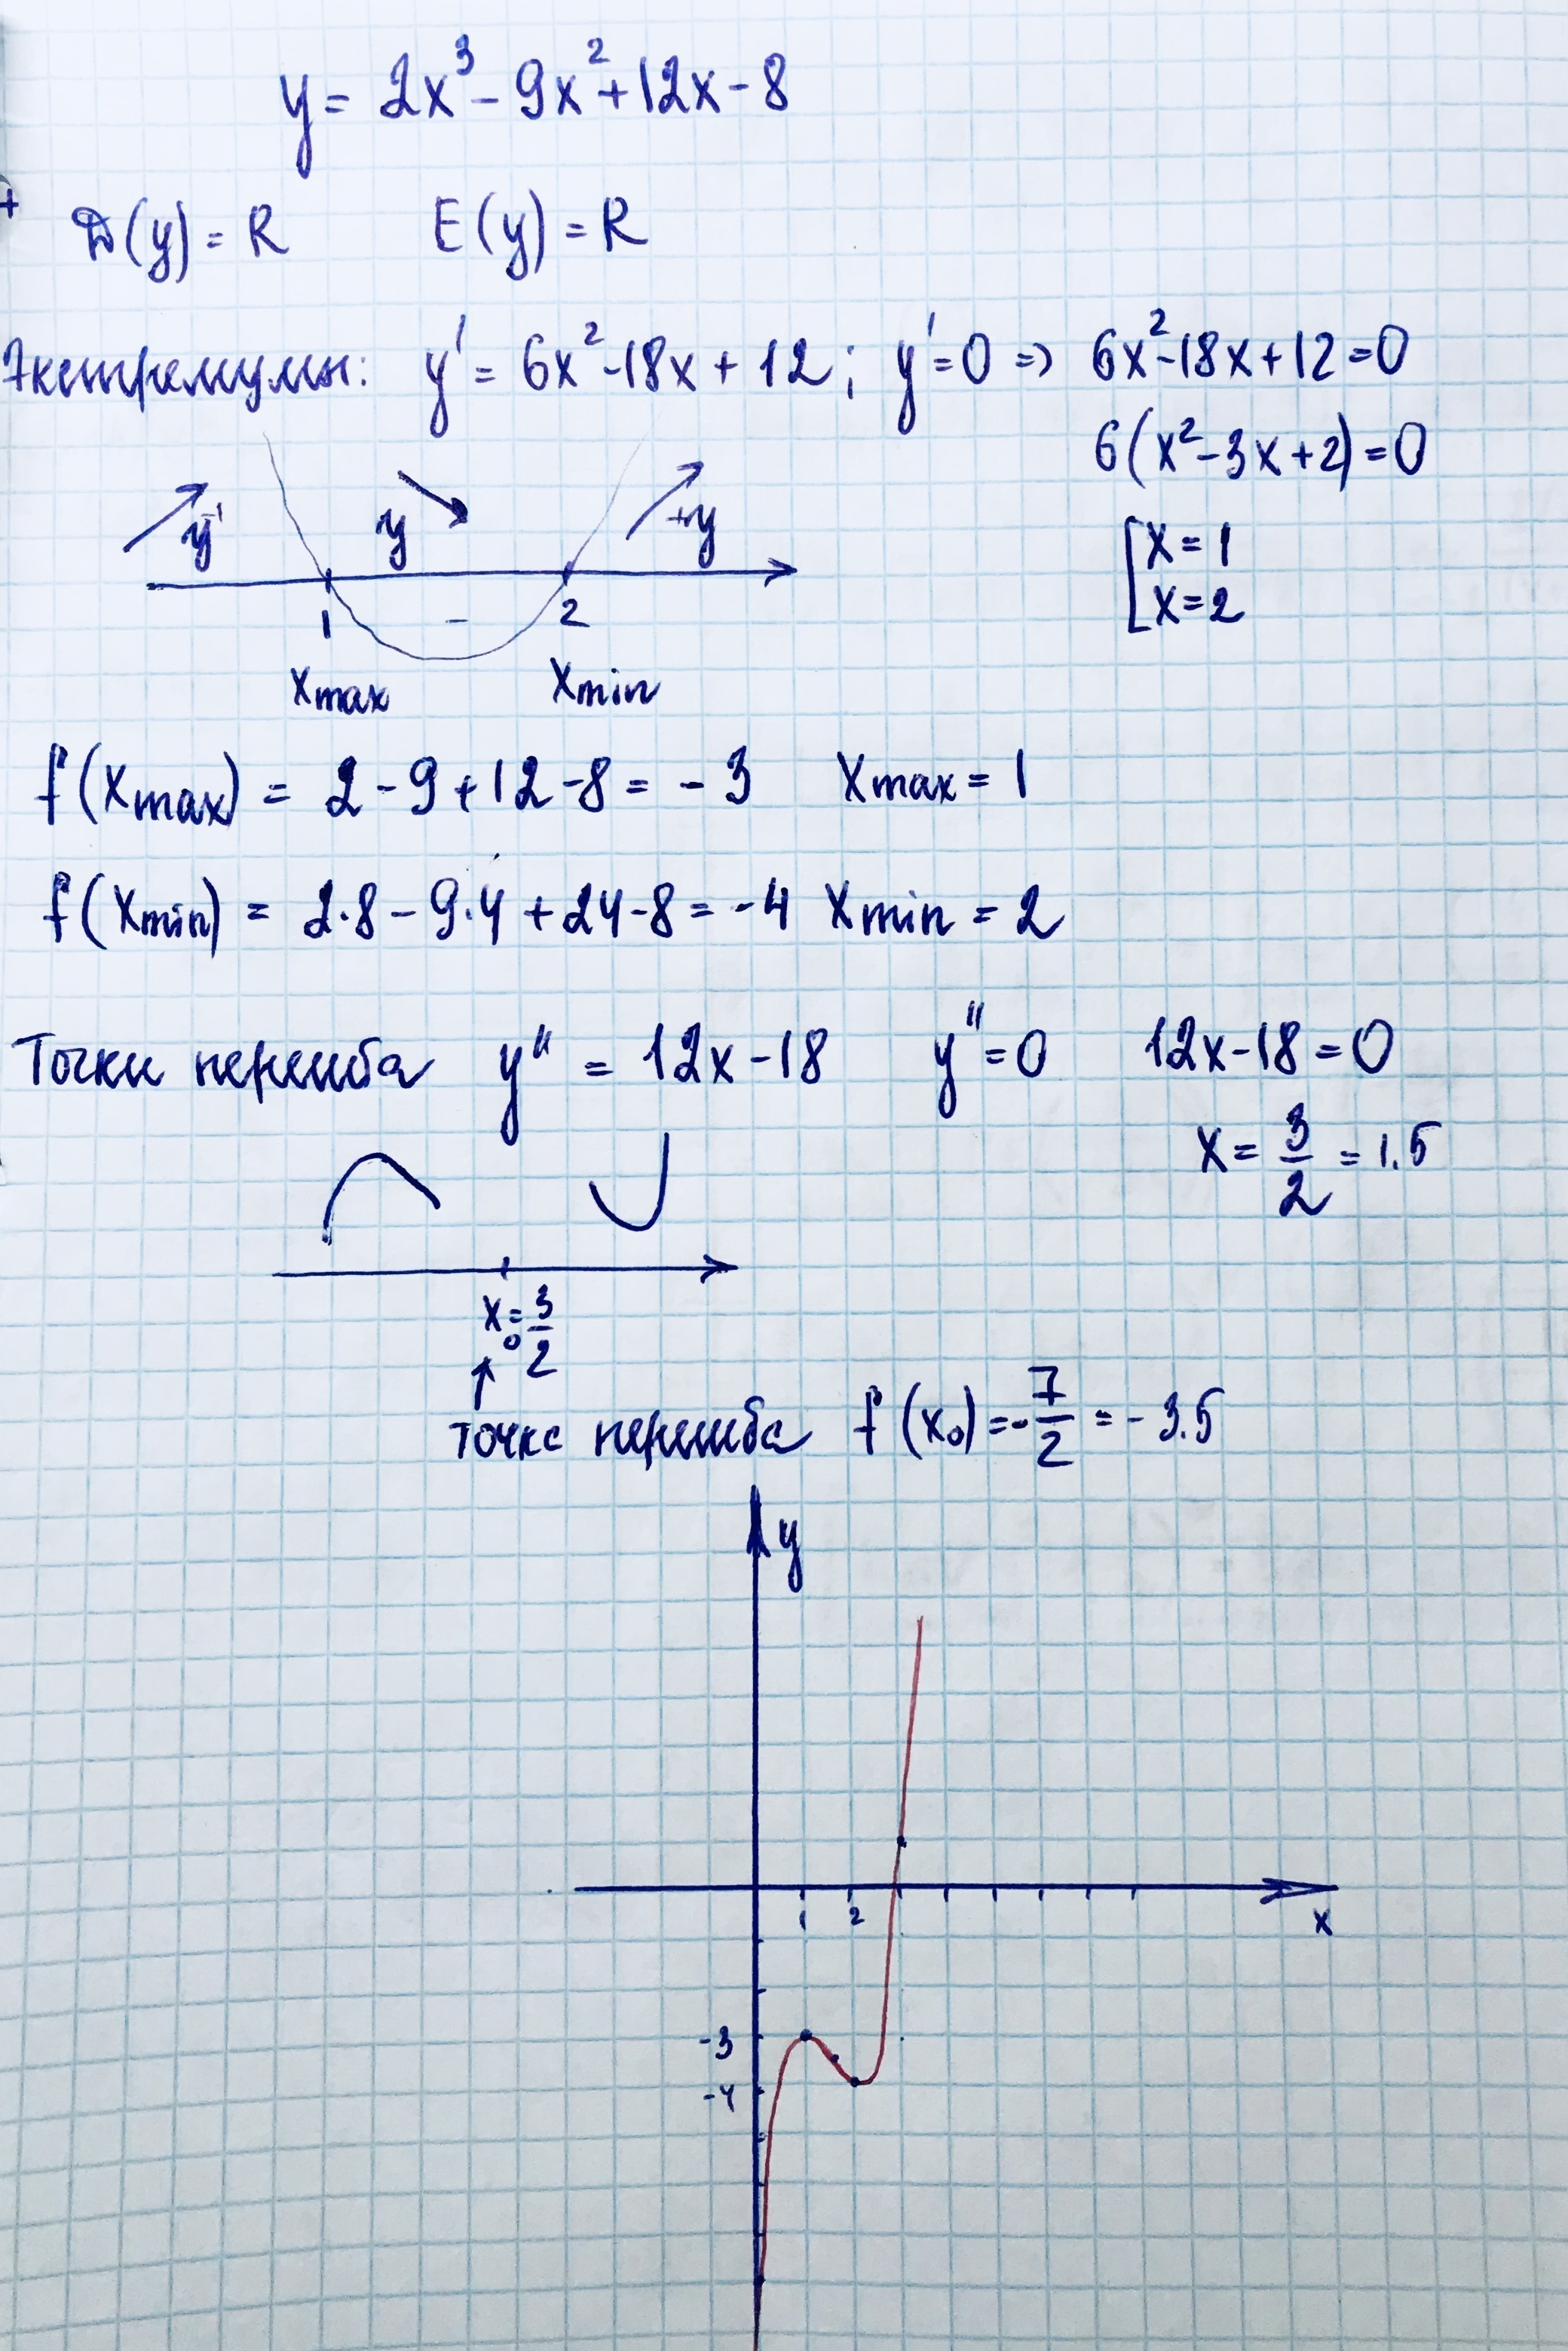 y = 2x³ - 9x² + 12x - 8
+
D(y) = R E(y) = R
Экстремумы: y' = 6x² - 18x + 12; y' = 0 => 6x² - 18x + 12 = 0
6(x² - 3x + 2) = 0
y + y +y
x = 1
x = 2
1 - 2
Xmax Xmin
f(Xmax) = 2 - 9 + 12 - 8 = - 3 Xmax = 1
f(Xmin) = 2·8 - 9·4 + 24 - 8 = -4 Xmin = 2
Точки перегиба y'' = 12x - 18 y'' = 0 12x - 18 = 0
x = 3/2 = 1.5
x₀ = 3/2
точка перегиба f(x₀) = -7/2 = -3.5
y
1 2 x
-3
-4